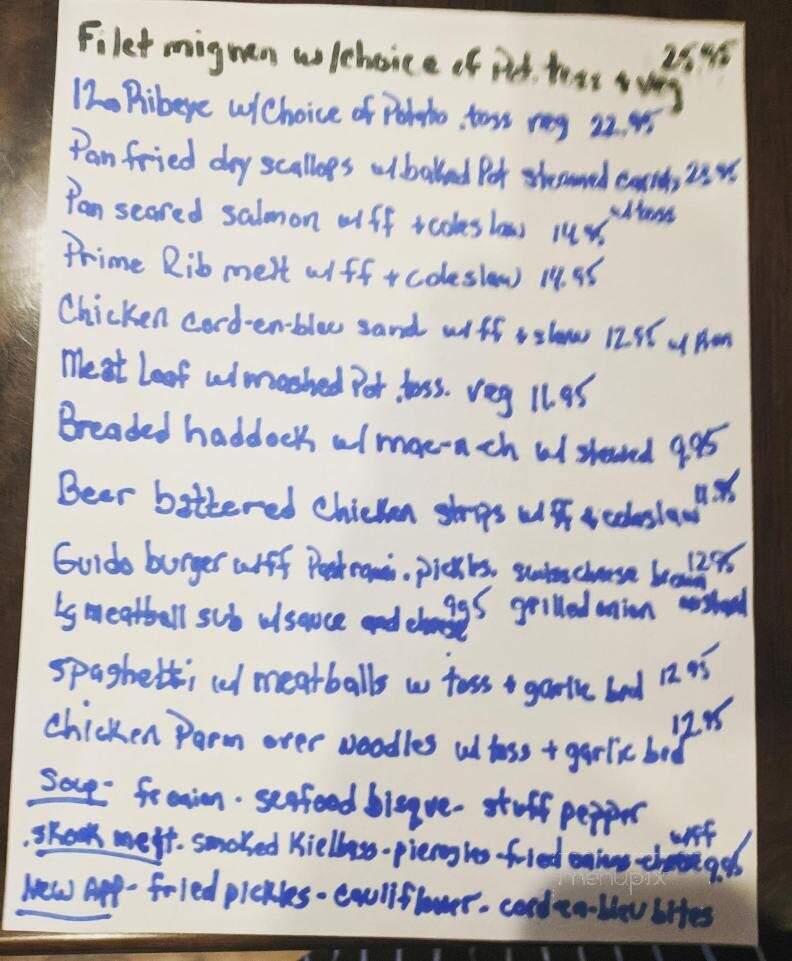 Filet mignen w/choice of Pot. toss + veg 25.95
12o Ribeye w/Choice of Potato .toss veg 22.95
Pan fried dry scallops w/baked Pot steamed carrots w/toss
Pan seared salmon w/ff + coleslaw 14.95
Prime Rib melt w/ff + coleslaw 14.95
Chicken cord-en-bleu sand w/ff + slaw 12.95
Meat Loaf w/mashed Pot .toss. veg 11.95
Breaded haddock w/ mac-n-ch w/ stewed 9.95
Beer battered chicken strips w/ff & coleslaw 11.95
Guido burger w/ff Pastrami. pickles. swiss cheese brown 12.95
grilled onion mustard
Lg meatball sub w/sauce and cheese 9.95
Spaghetti w/ meatballs w toss + garlic brd 12.95
Chicken Parm over Noodles w/ toss + garlic brd 12.95
Soup- fr onion. seafood bisque- stuff pepper
.skook melt. smoked Kielbass-pierogies-fried onions-cheese w/ff 9.95
New App- fried pickles - cauliflower- cord-en-bleu bites
menupix